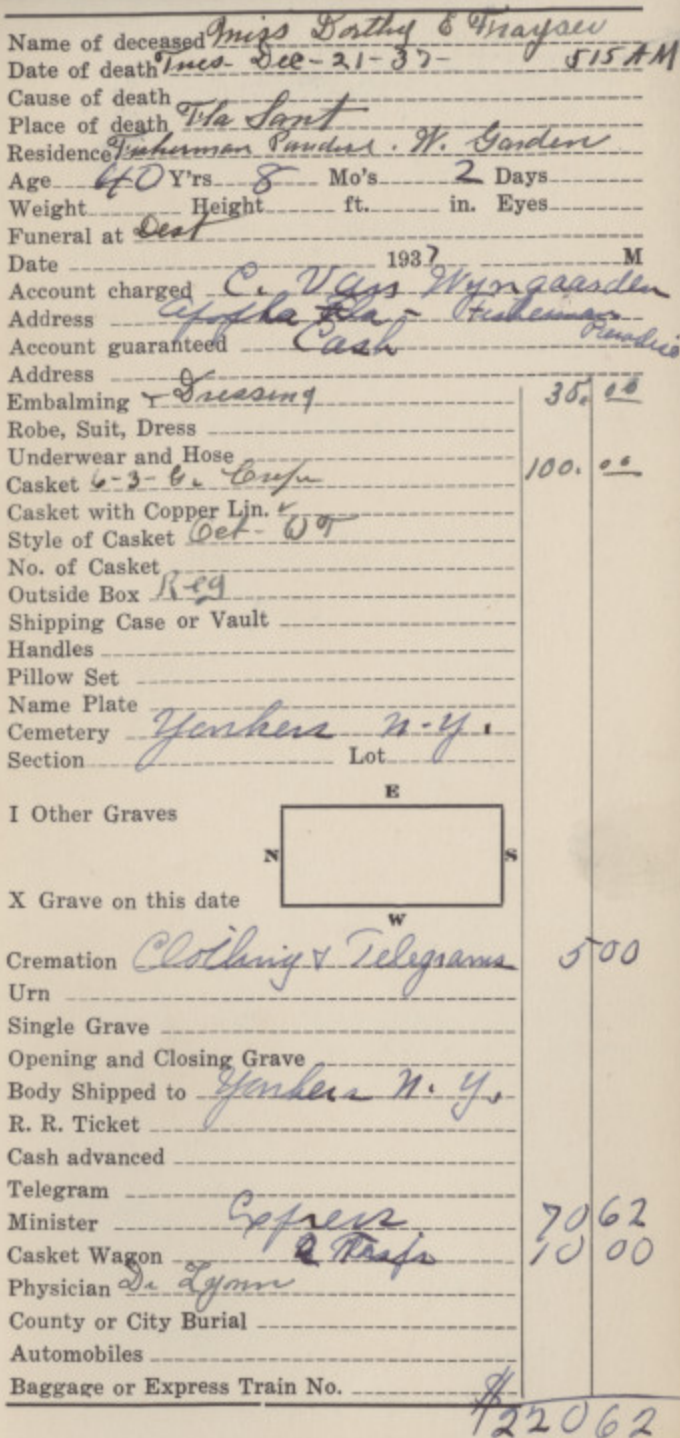 Name of deceased Miss Dorthy E Thayser
Date of death Tues- Dec-21-37- 515 AM
Cause of death
Place of death Fla Sant
Residence Fisherman Paradise. W. Garden
Age 40 Y'rs 8 Mo's 2 Days
Weight Height ft. in. Eyes
Funeral at Dest
Date 1937 M
Account charged C. Van Wyngaarden
Address Apopka Fla - Fisherman Paradise
Account guaranteed Cash
Address
Embalming & Dressing 35. 00
Robe, Suit, Dress
Underwear and Hose
Casket 6-3- G. Crepe 100. 00
Casket with Copper Lin.
Style of Casket Oct- WT
No. of Casket
Outside Box Reg
Shipping Case or Vault
Handles
Pillow Set
Name Plate
Cemetery Yonkers N-Y.
Section Lot
E
I Other Graves
N S
X Grave on this date
W
Cremation Clothing & Telegrams 5 00
Urn
Single Grave
Opening and Closing Grave
Body Shipped to Yonkers N. Y.
R. R. Ticket
Cash advanced
Telegram
Minister Express 70 62
Casket Wagon 2 Trips 10 00
Physician Dr Lynn
County or City Burial
Automobiles
Baggage or Express Train No.
$220 62